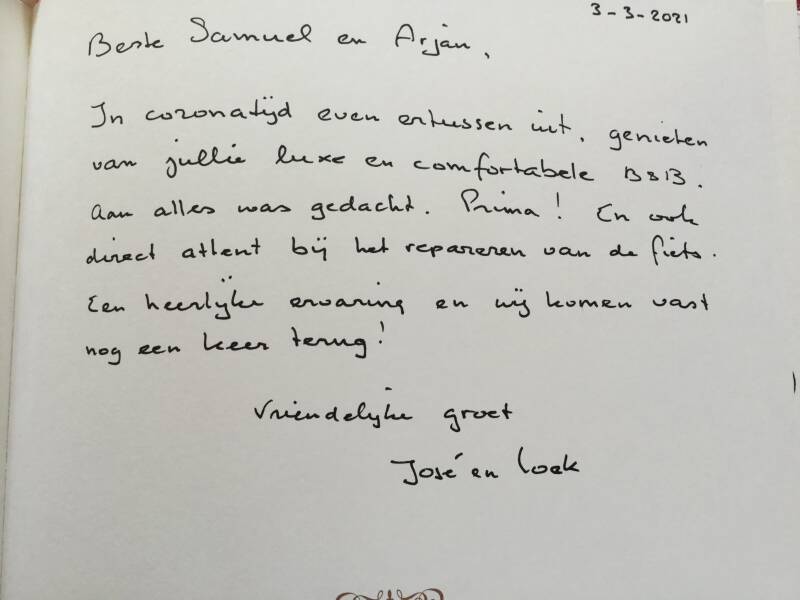 3-3-2021
Beste Samuel en Arjan,
In coronatijd even ertussen uit, genieten
van jullie luxe en comfortabele B&B.
Aan alles was gedacht. Prima! En ook
direct attent bij het repareren van de fiets.
Een heerlijke ervaring en wij komen vast
nog een keer terug!
Vriendelijke groet
José en Loek